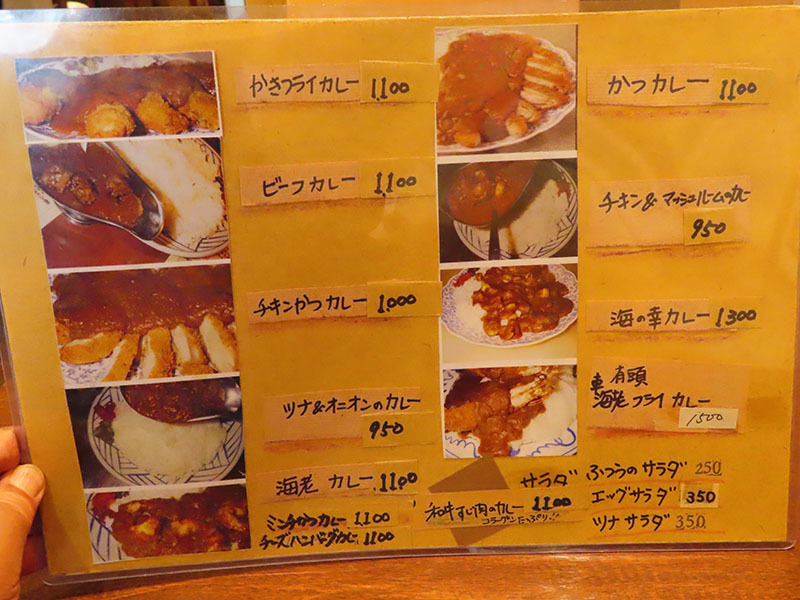 かきフライカレー 1,100
ビーフカレー 1,100
チキンかつカレー 1,000
ツナ&オニオンのカレー
950
海老 カレー 1,100
ミンチかつカレー 1,100
チーズハンバーグカレー 1100
かつカレー 1100
チキン&マッシュルームのカレー
950
海の幸カレー 1300
有頭
海老フライカレー
1500
和牛すじ肉のカレー 1100
コラーゲンたっぷり!!
サラダ ふつうのサラダ 250
エッグサラダ 350
ツナサラダ 350